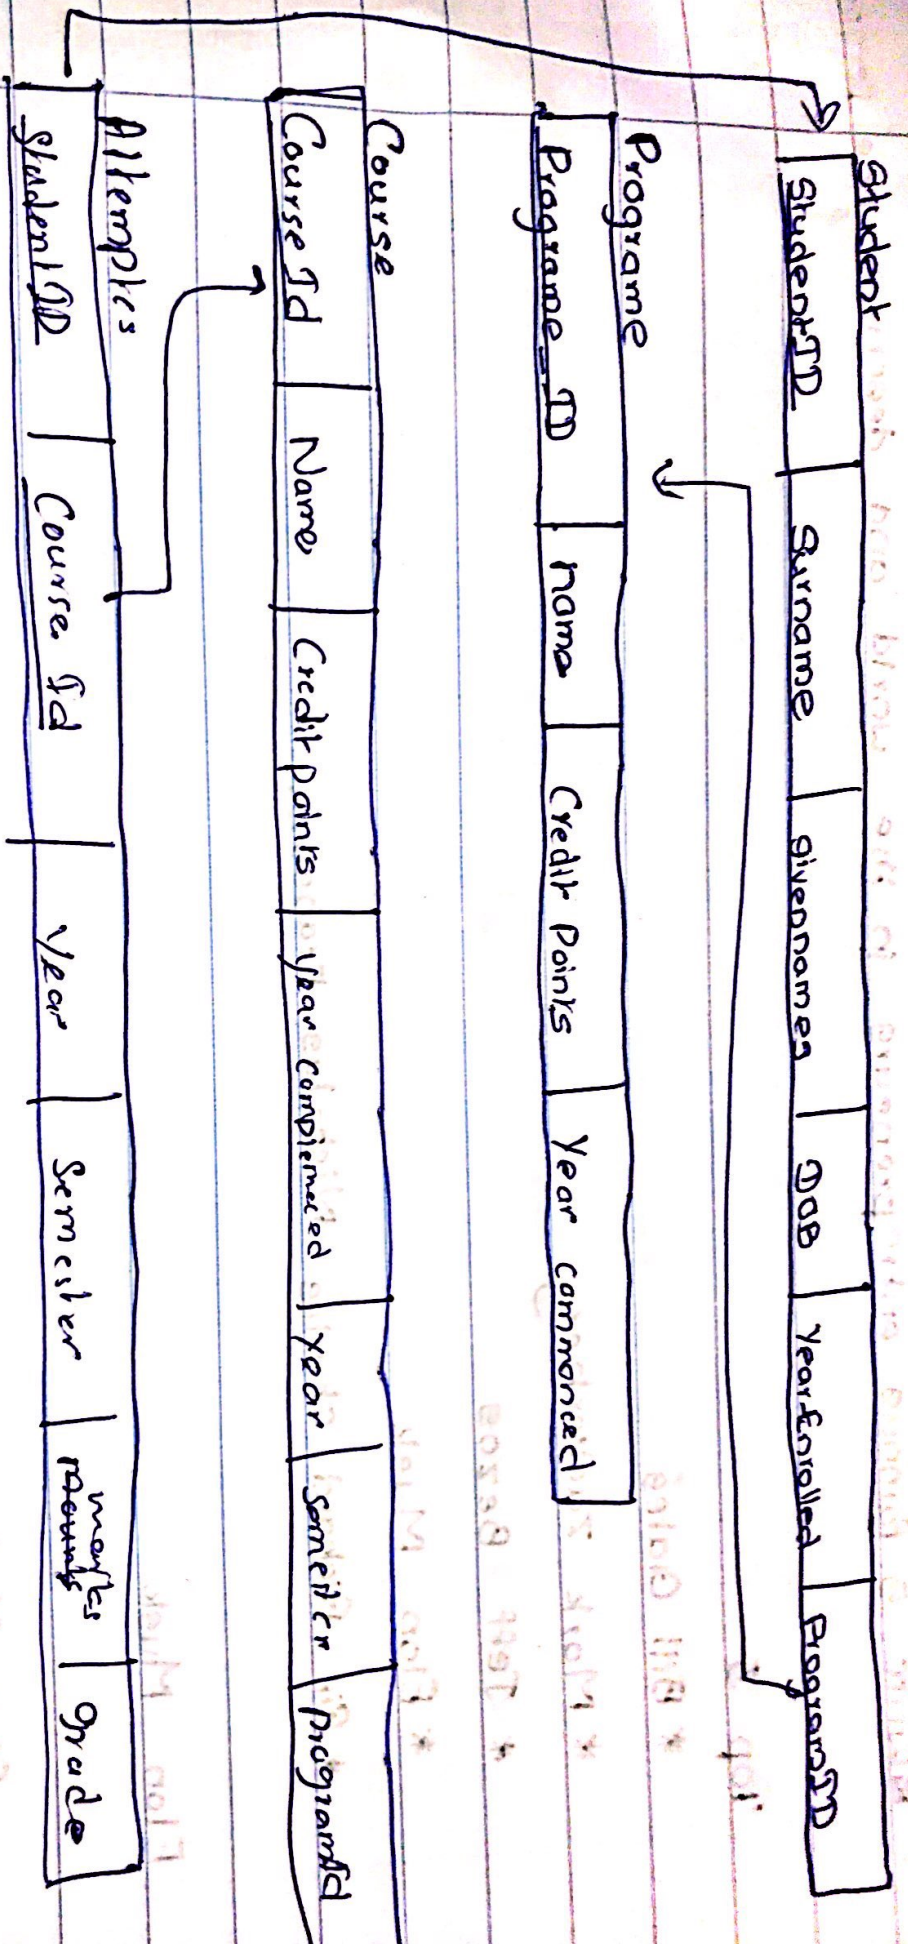 Student
StudentID Surname givennames DOB Year-Enrolled ProgramID
Programe
Programe_ID name Credit Points Year commenced
Course
Course Id Name Credit points year complemeced year semeiter programId
Attemptes
StudentID Course Id Year Semester marks grade